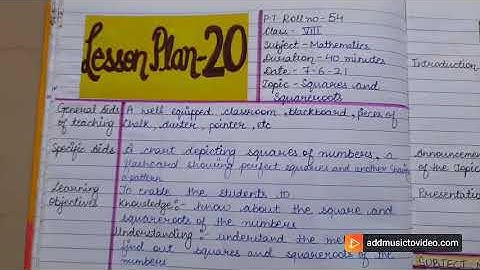 Lesson Plan-20
P.T Roll no - 54
Class - VIII
Subject - Mathematics
Duration - 40 minutes
Date - 7-6-21
Topic - Squares and
Squareroots
General aids
of teaching
A well equipped classroom, blackboard, pieces of
chalk, duster, pointer, etc
Specific aids
A chart depicting squares of numbers, a
flashcard showing perfect squares and another showing
a pattern
Learning
objectives
To enable the students to
Knowledge:- know about the square and
squareroots of the numbers
Understanding:- understand the
find out squares and squareroots of the
numbers
Introduction
Announcement
of the Topic
Presentation
SUBJECT
addmusictovideo.com